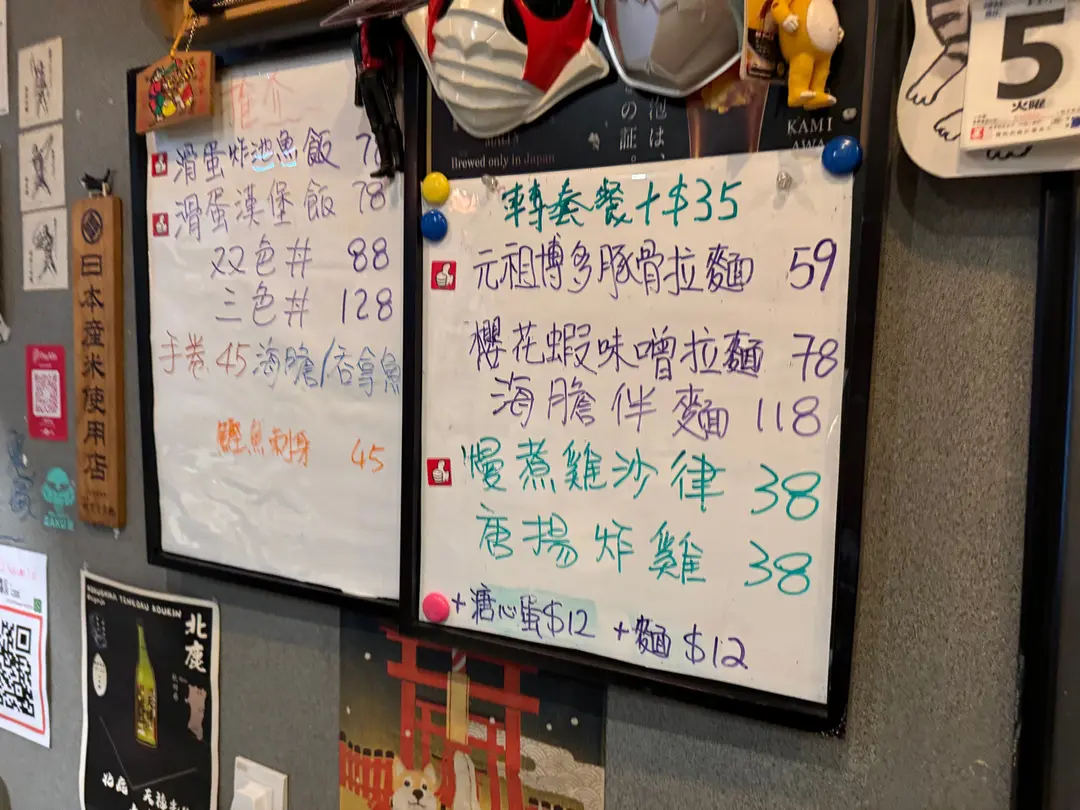 推介
滑蛋炸池魚飯
滑蛋漢堡飯 78
双色丼 88
三色丼 128
手卷 45 海膽/吞拿魚
鰹魚刺身 45
日本産米使用店
Brewed only in Japan
泡は、
の証。
KAMI
AWA
5
火曜
轉套餐+$35
元祖博多豚骨拉麵 59
櫻花蝦味噌拉麵 78
海膽伴麵 118
慢煮雞沙律 38
唐揚炸雞 38
+溏心蛋$12 +麵 $12
北鹿
HOKUSHIKA TENROKU KOUKIN